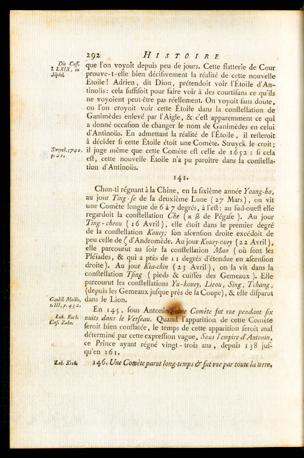 292 HISTOIRE
Dio Cass.
l. LXIX, in
que l'on voyoit depuis peu de jours. Cette flatterie de Cour
prouve-t-elle bien décisivement la réalité de cette nouvelle
Étoile? Adrien, dit Dion, prétendoit voir l'Étoile d'An-
tinoüs: cela suffisoit pour faire voir à des courtisans ce qu'ils
ne voyoient peut-être pas réellement. On voyoit sans doute,
ou l'on croyoit voir cette Étoile dans la constellation de
Ganimèdes enlevé par l'Aigle, & c'est apparemment ce qui
a donné occasion de changer le nom de Ganimèdes en celui
d'Antinoüs. En admettant la réalité de l'Étoile, il resteroit
à décider si cette Étoile étoit une Comète. Struyck le croit;
Struyck 1740.
il juge même que cette Comète est celle de 1652: si cela
est, cette nouvelle Étoile n'a pu paroître dans la constella-
tion d'Antinoüs.
141.
Chun-ti régnant à la Chine, en la sixième année Young-ho,
au jour Ting-se de la deuxième Lune (27 Mars), on vit
une Comète longue de 6 à 7 degrés, à l'est: au sud-ouest elle
regardoit la constellation Che (α β de Pégase). Au jour
Ting-cheou (16 Avril), elle étoit dans le premier degré
de la constellation Kouey: son ascension droite excédoit de
peu celle de ζ d'Andromède. Au jour Kouey-ouey (22 Avril),
elle parcourut au soir la constellation Mao (où sont les
Pléiades, & qui a près de 11 degrés d'étendue en ascension
droite). Au jour Kia-chin (23 Avril), on la vit dans la
constellation Tsing (pieds & cuisses des Gemeaux). Elle
parcourut les constellations Yu-kouey, Lieou, Sing, Tchang,
(depuis les Gemeaux jusque près de la Coupe), & elle disparut
dans le Lion.
En 145, sous Antonin, une Comète fut vue pendant six
nuits dans le Verseau. Quand l'apparition de cette Comète
seroit bien constatée, le temps de cette apparition seroit mal
déterminé par cette expression vague, Sous l'empire d'Antonin,
ce Prince ayant régné vingt-trois ans, depuis 138 jus-
qu'en 161.
146. Une Comète parut long-temps & fut vue par toute la terre,